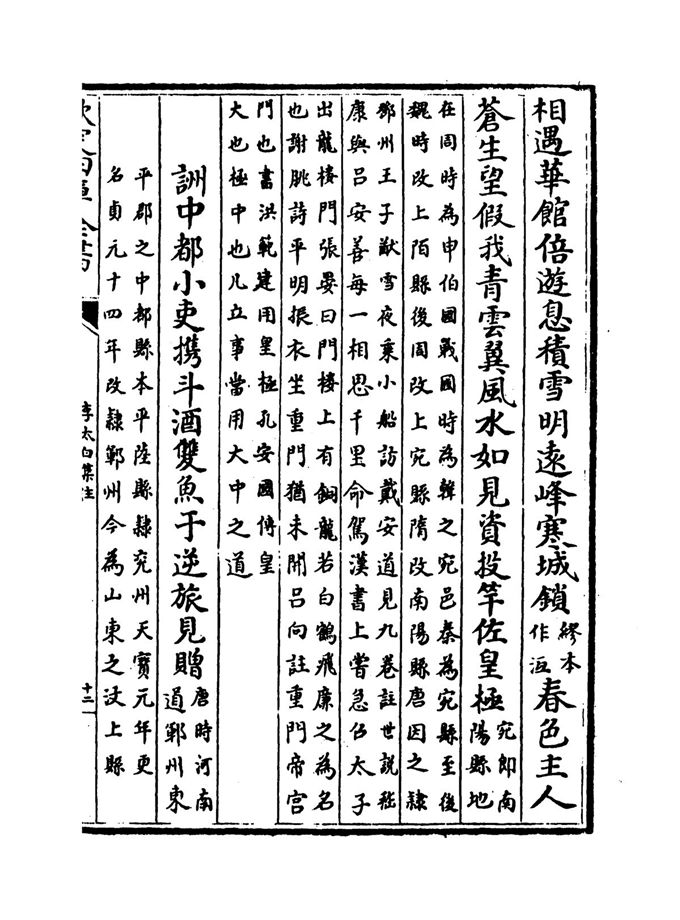 相遇華館倍遊息積雪明遠峰寒城鎖繆本作沍春色主人
蒼生望假我青雲翼風水如見資投竿佐皇極宛即南陽縣地
在周時為申伯國戰國時為韓之宛邑秦為宛縣至後
魏時改上陌縣後周改上宛縣隋改南陽縣唐因之隸
鄧州王子猷雪夜乗小船訪戴安道見九卷註世說嵇
康與吕安善每一相思千里命駕漢書上嘗急召太子
出龍樓門張晏曰門樓上有銅龍若白鶴飛廉之為名
也謝朓詩平明振衣坐重門猶未開吕向註重門帝宫
門也書洪範建用皇極孔安國傳皇
大也極中也凡立事當用大中之道
詶中都小吏携斗酒雙魚于逆旅見贈唐時河南道鄆州東
平郡之中都縣本平陸縣隸兖州天寶元年更
名貞元十四年改隸鄆州今為山東之汶上縣
欽定四庫全書
李太白集注
十二